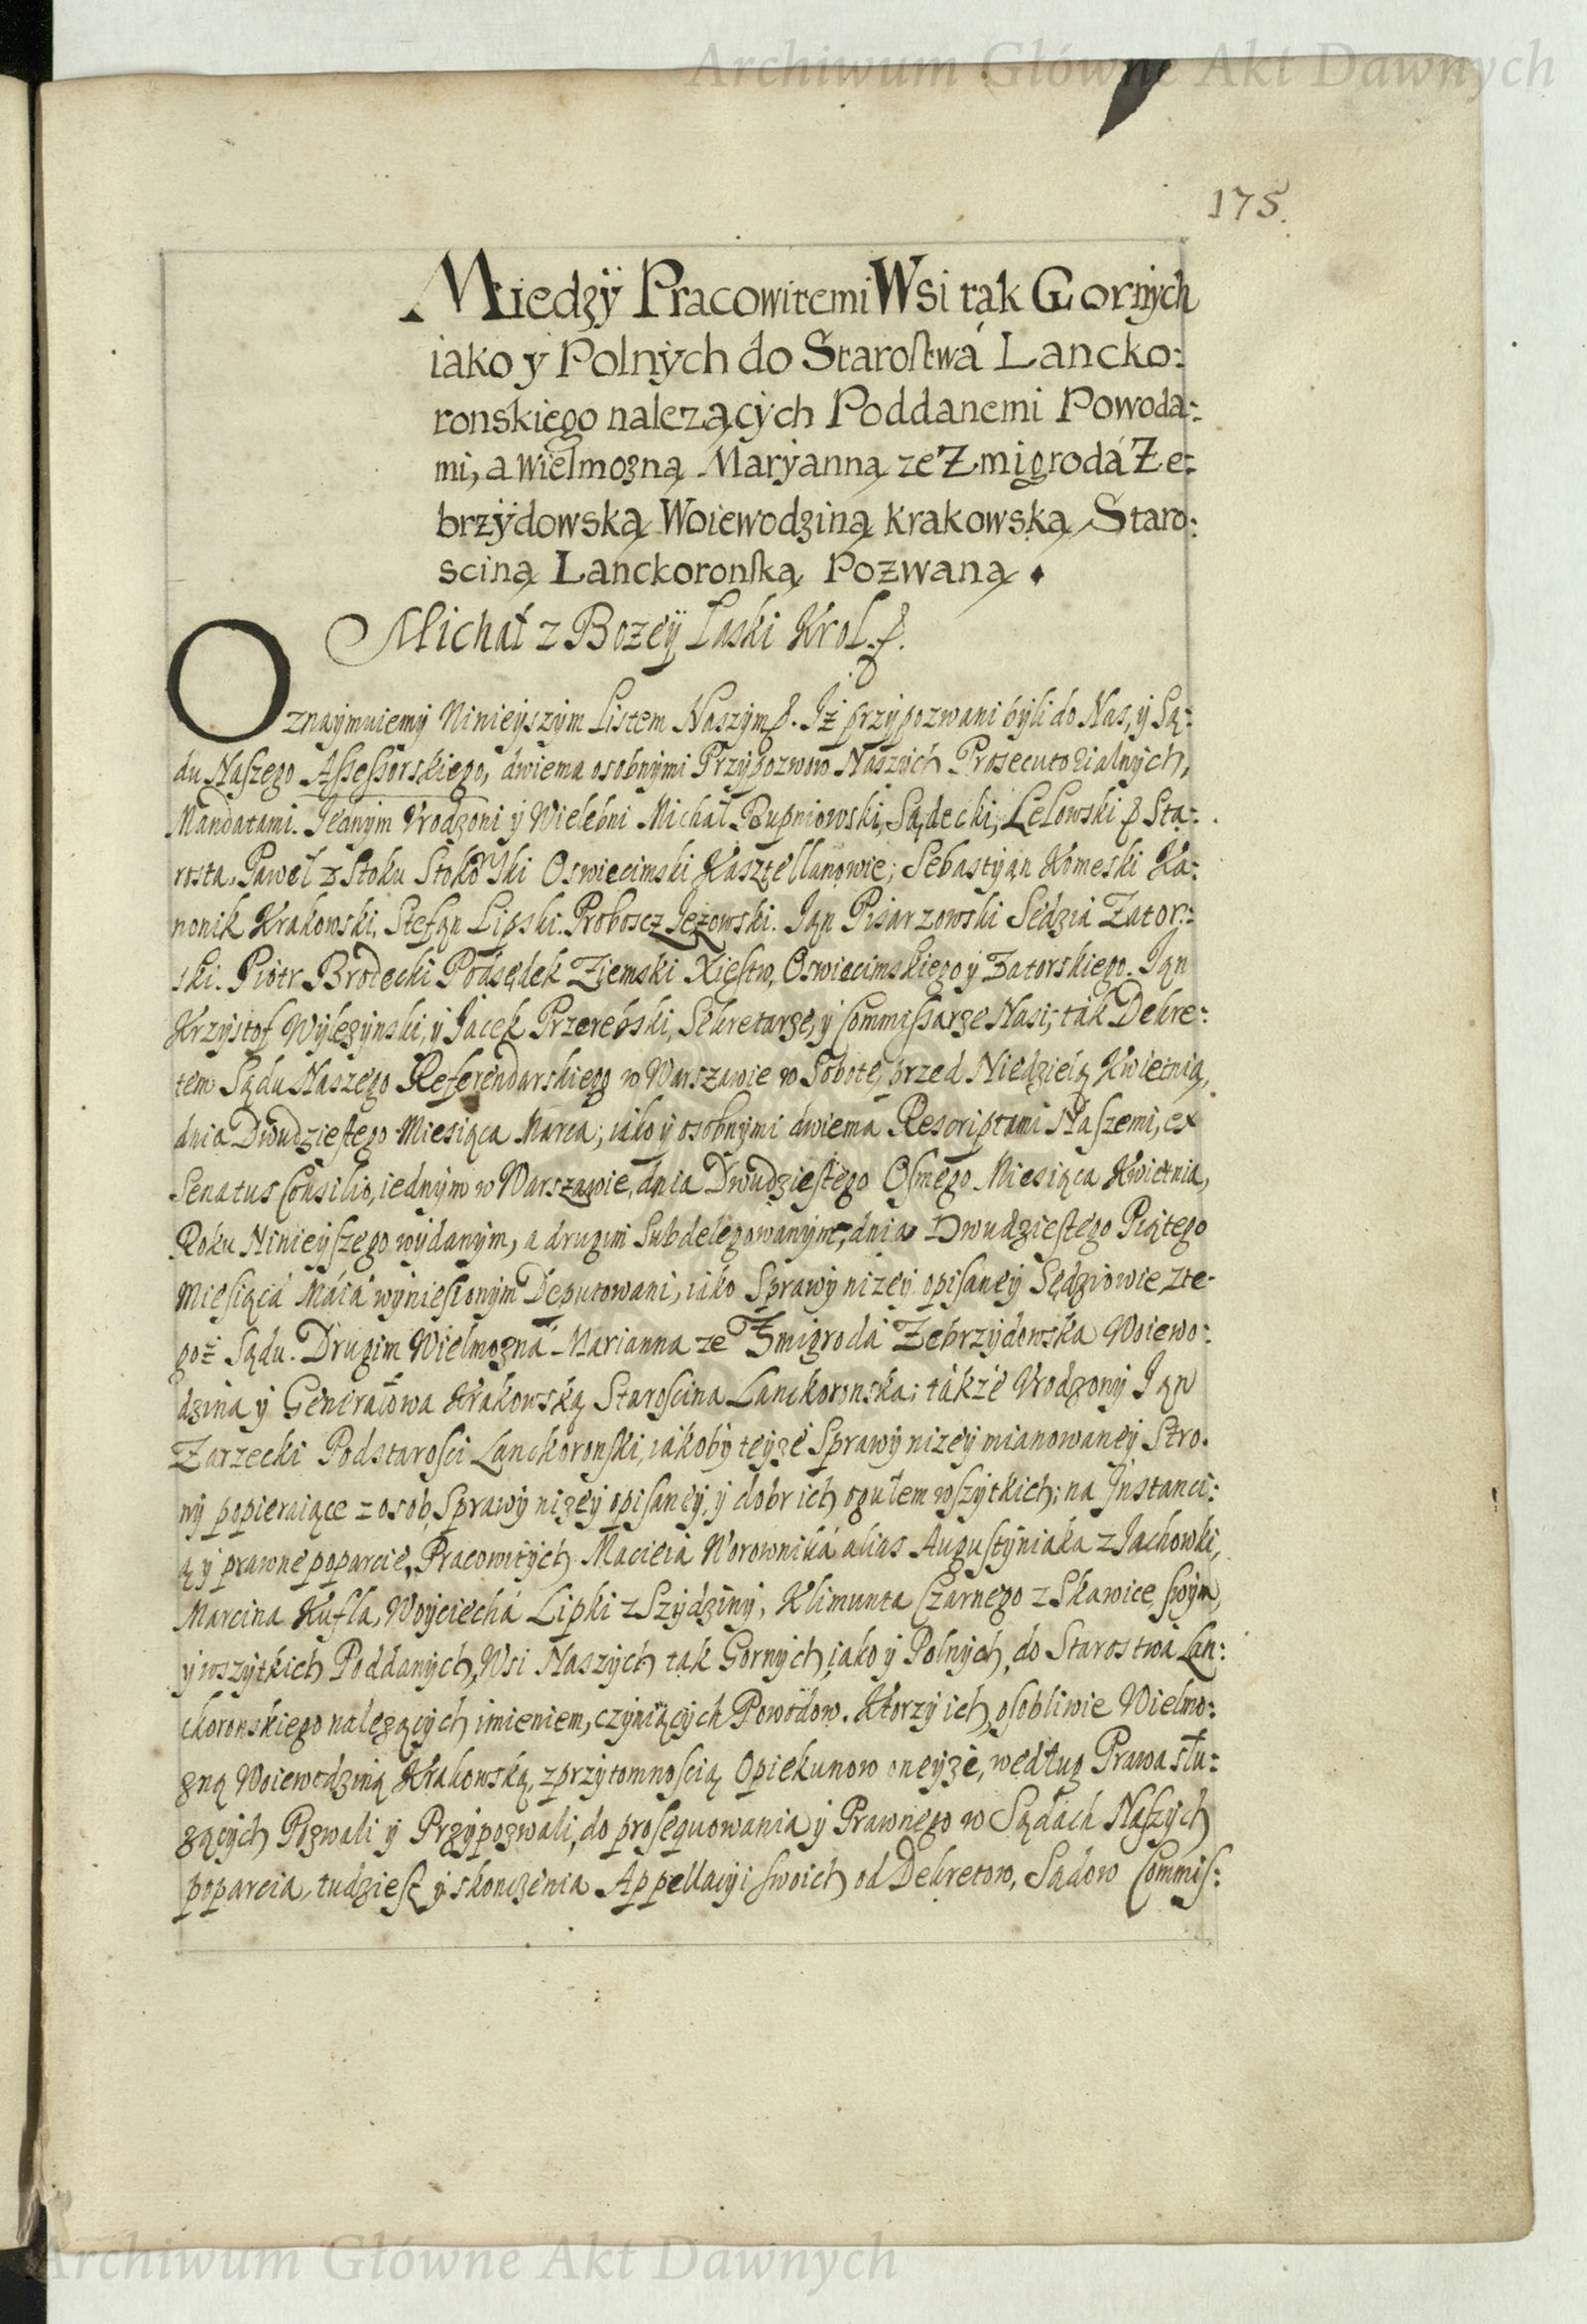 Archiwum Główne Akt Dawnych
175.
Miedzÿ Pracowitemi Wsi tak Gornÿch
iako y Polnÿch do Starostwá Lancko:
ronskiego nalezącÿch Poddanemi Powoda:
mi, a wielmozną Marÿanną ze Zmigrodá Ze:
brzÿdowską Woiewodziną Krakowską Staro:
sciną Lanckoronską Pozwaną.
Michał z Bozeÿ Laski Krol
Oznaÿmuiemÿ Ninieÿszÿm Listem Naszÿm. Iż przÿpozwani bÿli do Nas, ÿ Są:
du Naszego Assessorskiego, dwiema osobnÿmi Przÿpozwow Naszÿch Prosecutorialnÿch,
Mandatami. Jednÿm Vrodzoni ÿ Wielebni Michał Bupniowski, Sądecki, Lelowski Sta:
rosta, Paweł z Stoku Stokowski Oswiecimski Kasztellanowie; Sebastÿan Komeski Ka:
nonik Krakowski, Stefan Lipski. Proboscz Jezowski. Jan Pisarzowski Sedzia Zator:
ski. Piotr Brodecki Podsędek Ziemski Xięstw, Oswiecimskiego ÿ Zatorskiego. Jan
Krzÿstof Wÿlezÿnski, ÿ Jacek Przerębski, Sekretarze, ÿ Commissarze Nasi; ták Dekre:
tem Sądu Naszego Referendarskiego w Warszawie w Sobotę, przed Niedzielą Kwietnią,
dnia Dwudziestego Miesiąca Marca; iako ÿ osobnÿmi dwiema Rescriptami Naszemi, ex
Senatus Consilio, iednÿm w Warszawie, dnia Dwudziestego Osmego Miesiąca Kwietnia,
Roku Ninieÿszego wÿdanÿm, a drugim Subdelegowanÿm, dnia Dwudziestego Piątego
Miesiącá Máiá wÿniesionÿm Deputowani, iáko Sprawÿ nizeÿ opisaneÿ Sędziowie, zte-
goż Sądu. Drugim Wielmozna Marianna ze Zmigrodá Zebrzÿdowska Woiewo:
dzina ÿ Generałowa Krakowską Staroscina Lanckoronska; tákże Vrodzonÿ Jan
Zarzecki Podstarosci Lanckoronski, iákobÿ teÿże Sprawÿ nizeÿ mianowaneÿ Stro.
nÿ popieraiące z osob, Sprawÿ nizeÿ opisaneÿ, ÿ dobr ich ogułem wszÿtkich; na Jnstanci:
ą ÿ prawne poparcie, Pracowitÿch Macieia Worownika alias Augustÿniaka z Jachowki,
Marcina Kufla, Woÿciechá Lipki z Szÿdzinÿ, Klimunta Czarnego z Skawice, swÿm
ÿ wszÿtkich Poddanÿch, Wsi Naszÿch tak Gornÿch, iako ÿ Polnÿch, do Starostwá Lan:
ckoronskiego nalezącÿch imieniem, czÿniącÿch Powodow. Ktorzÿ ich, osobliwie Wielmo:
zną Woiewodziną Krakowską, z przÿtomnoscią Opiekunow oneÿże, według Prawa słu:
zącÿch Pozwali ÿ Przÿpozwali, do prosequowania ÿ Prawnego w Sądách Naszÿch
poparcia, tudziesz ÿ skonczenia Appellacÿi swoich od Dekretow, Sądow Commis:
Archiwum Główne Akt Dawnych